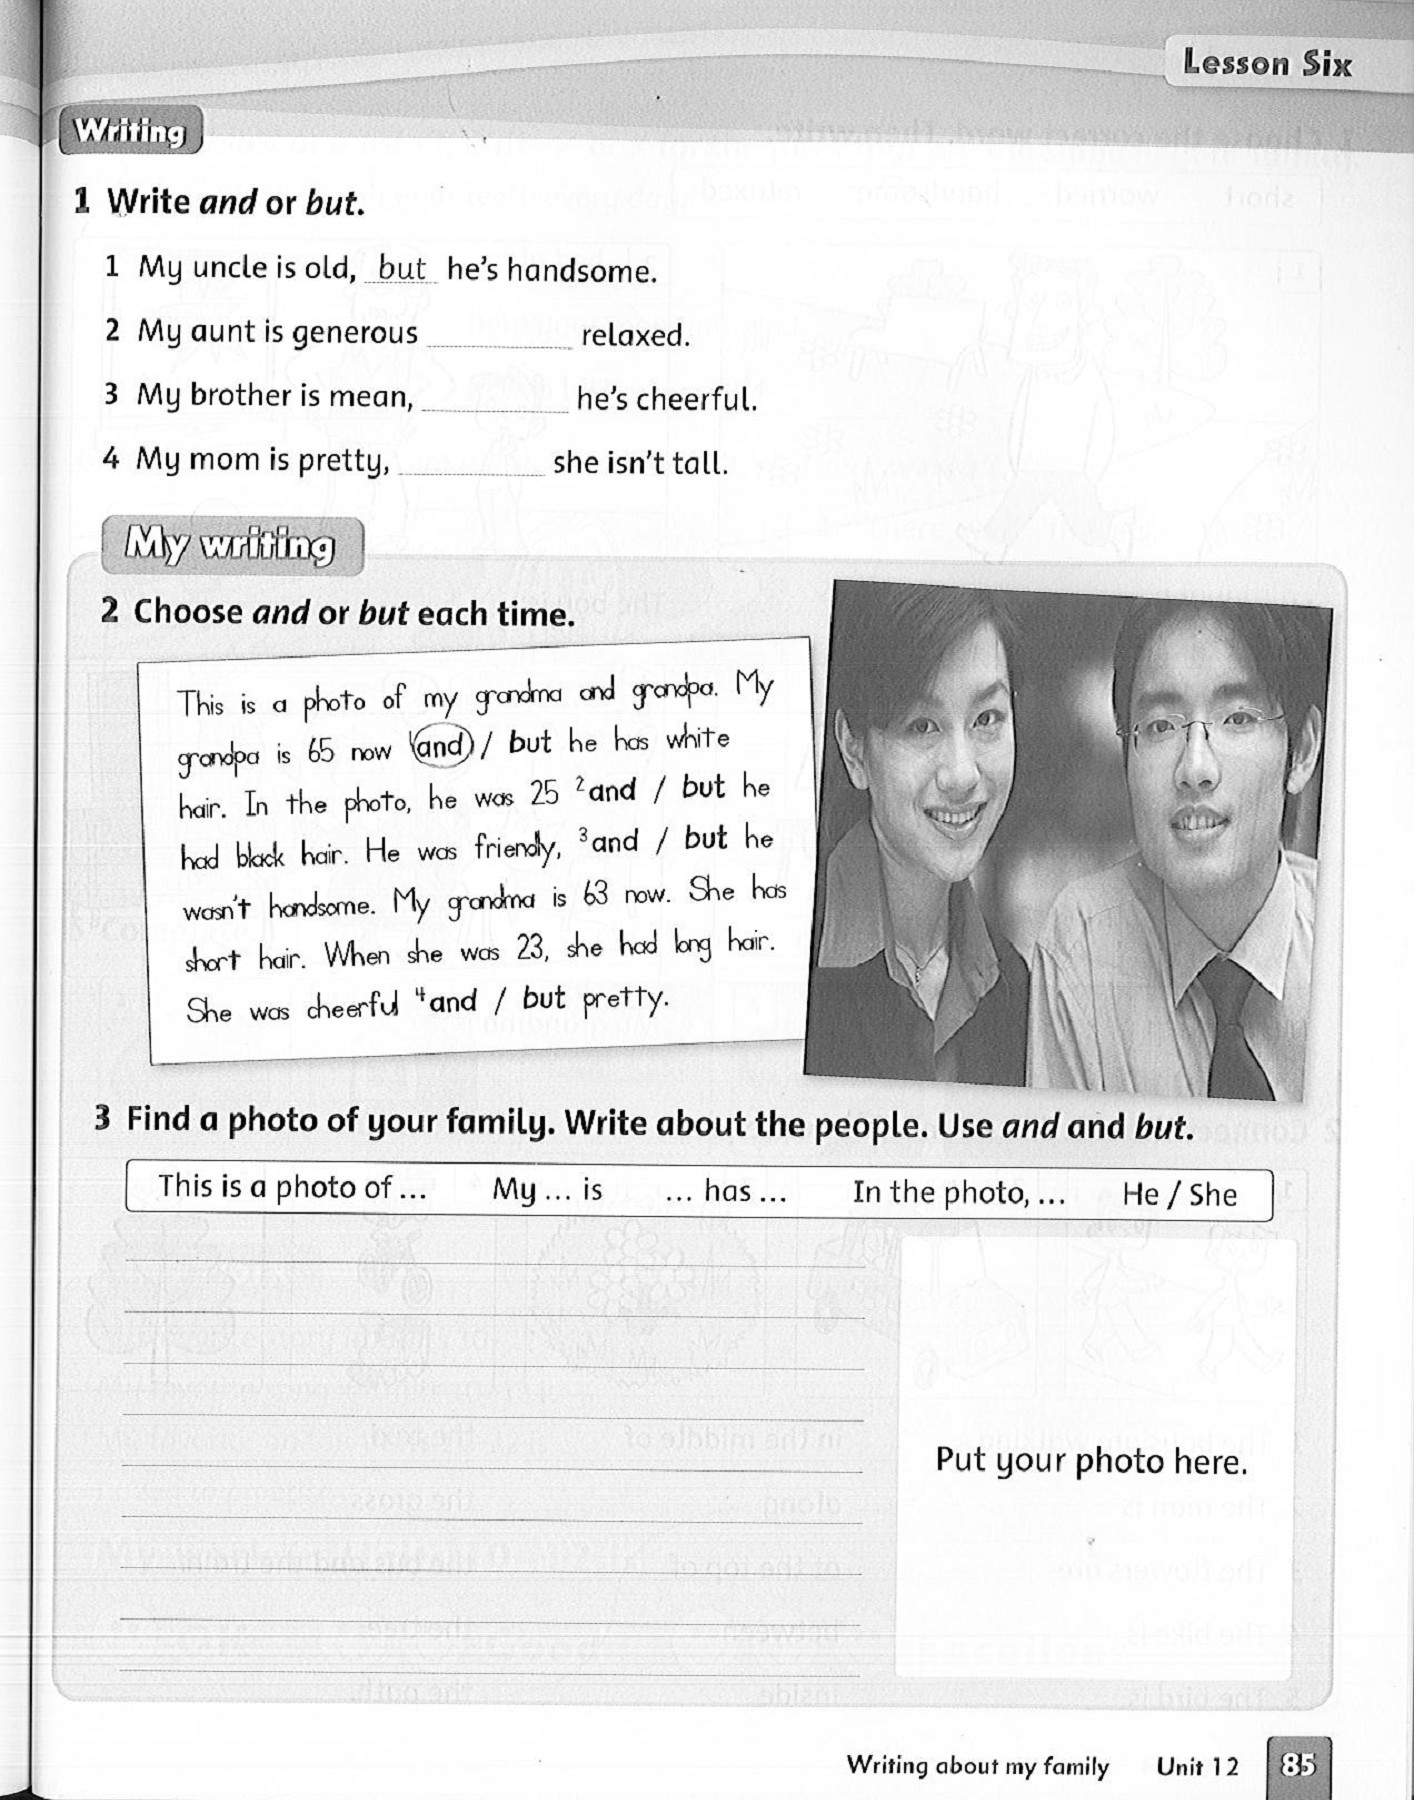 Lesson Six
Writing
1 Write and or but.
1 My uncle is old, but he's handsome.
2 My aunt is generous relaxed.
3 My brother is mean, he's cheerful.
4 My mom is pretty, she isn't tall.
My writing
2 Choose and or but each time.
This is a photo of my grandma and grandpa. My
grandpa is 65 now 1and / but he has white
hair. In the photo, he was 25 2and / but he
had black hair. He was friendly, 3and / but he
wasn't handsome. My grandma is 63 now. She has
short hair. When she was 23, she had long hair.
She was cheerful 4and / but pretty.
3 Find a photo of your family. Write about the people. Use and and but.
This is a photo of ... My ... is ... has ... In the photo, ... He / She
Put your photo here.
Writing about my family Unit 12 85